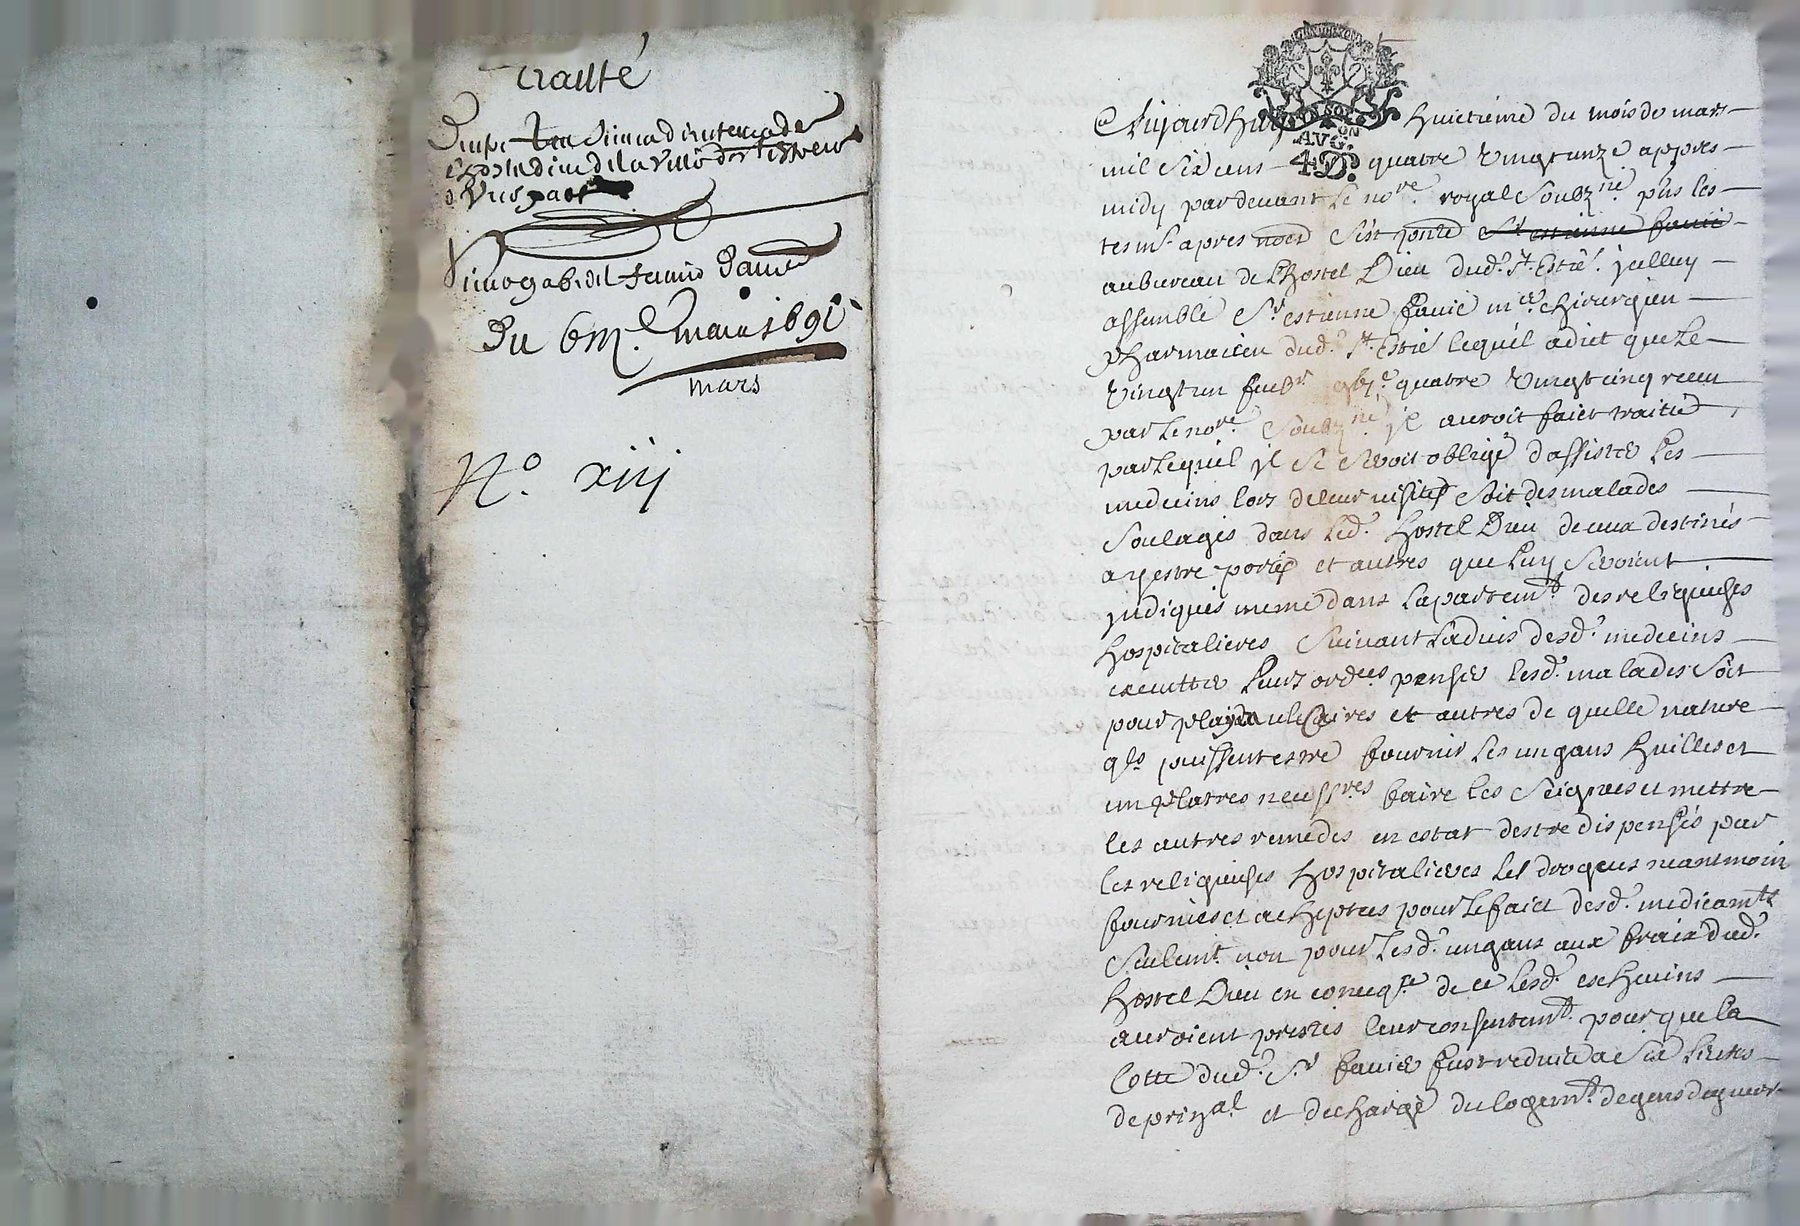 traitté
Entre Les Sieurs dirrecteurs de
l'hostel dieu de la Ville de St Estienne
d'Une part
Du 6me mars 1691
mars
No. xiij
GEN DE LYON
AVG.ON
4 D.
Aujourdhuy huictieme du mois de mars
mil six cens quatre vingt unze appres
midy pardevant le nore. royal soubzné. p̃ns les
tesms. apres nommés s'est
au bureau de l'hostel Dieu dud. St. Estie. jcelluy
assemblé Sr. estienne favié me chirurgien
pharmacien dud. St. Estie lequel a dict que le
vingt un quatre vingt cinq receu
par le nore. soubzné jl auroit faict traitté
par lequel jl se seroit obligé d'assister les
medecins lors de leur visites soit des malades
soulagés dans led. hostel Dieu de ceux destinés
a y estre portés et autres que luy seroient
jndiqués meme dans l'apartemt. des religieuses
hospitalieres suivant l'advis desd. medecins
executter leurs ordces penser lesd. malades soit
pour playes ulcaires et autres de quelle nature
qls puissent estre fournir les ungans huilles et
emplatres necessres faire les seignees et mettre
les autres remedes en estat destre dispensés par
les religieuses hospitalieres les drogues neantmoin
fournies et acheptees pour le faict desd. medicamts
seulemt. non pour lesd. ungans aux fraix dud.
hostel Dieu en conseqce de ce lesd. eschevins
auroient prestés leur consentemt. pour que la
Cotte dud. Sr. favier fust reduitte a six livres
de prinal et dechargé du logemt. de gens de guerr